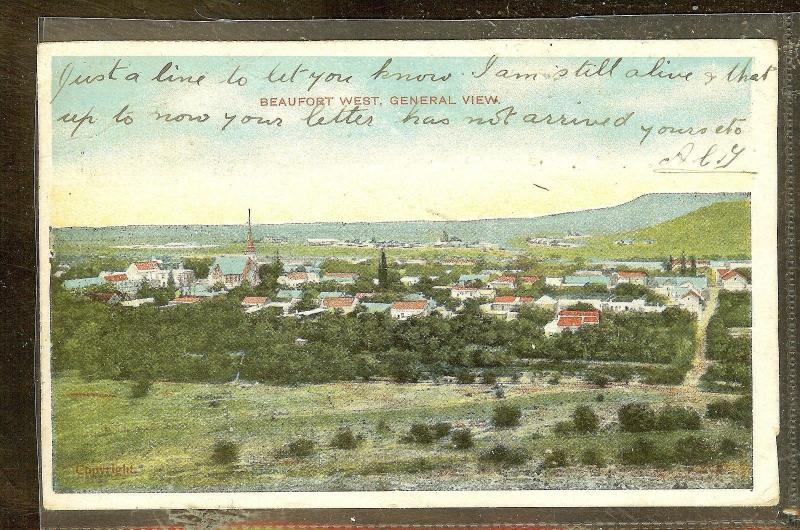 Just a line to let you know I am still alive & that
BEAUFORT WEST, GENERAL VIEW.
up to now your letter has not arrived yours etc
A C G
Copyright.